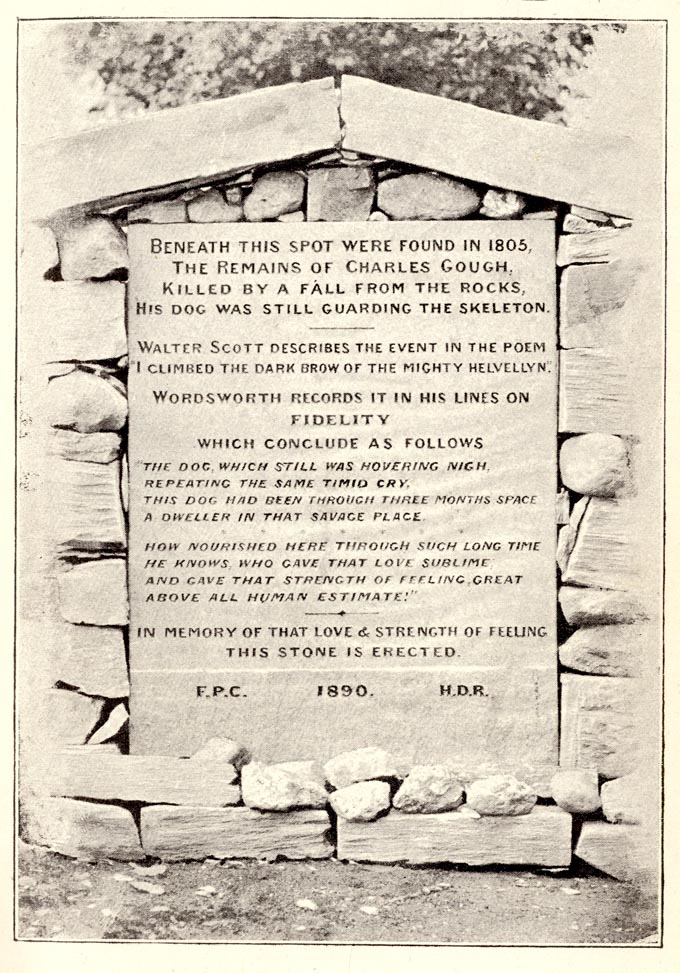 BENEATH THIS SPOT WERE FOUND IN 1805,
THE REMAINS OF CHARLES GOUGH,
KILLED BY A FALL FROM THE ROCKS,
HIS DOG WAS STILL GUARDING THE SKELETON.
WALTER SCOTT DESCRIBES THE EVENT IN THE POEM
"I CLIMBED THE DARK BROW OF THE MIGHTY HELVELLYN".
WORDSWORTH RECORDS IT IN HIS LINES ON
FIDELITY
WHICH CONCLUDE AS FOLLOWS
"THE DOG, WHICH STILL WAS HOVERING NIGH,
REPEATING THE SAME TIMID CRY,
THIS DOG HAD BEEN THROUGH THREE MONTHS SPACE
A DWELLER IN THAT SAVAGE PLACE.
HOW NOURISHED HERE THROUGH SUCH LONG TIME
HE KNOWS, WHO GAVE THAT LOVE SUBLIME,
AND GAVE THAT STRENGTH OF FEELING, GREAT
ABOVE ALL HUMAN ESTIMATE!"
IN MEMORY OF THAT LOVE & STRENGTH OF FEELING
THIS STONE IS ERECTED.
F.P.C. 1890. H.D.R.